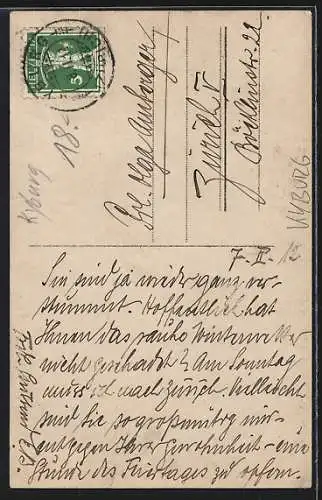 HELVETIA
5
Kyburg
18.-
Frl. Olga Amberger
Zürich V
22
KYBURG
7. II. 12
Sie sind ja wieder ganz ver-
stummt. Hoffentlich hat
Ihnen das rauhe Winterwetter
nicht geschadet? Am Sonntag
muss ich nach Zürich. Vielleicht
sind Sie so großmütig mir
entgegen Ihrer Gewohnheit - eine
Stunde des Feiertages zu opfern.